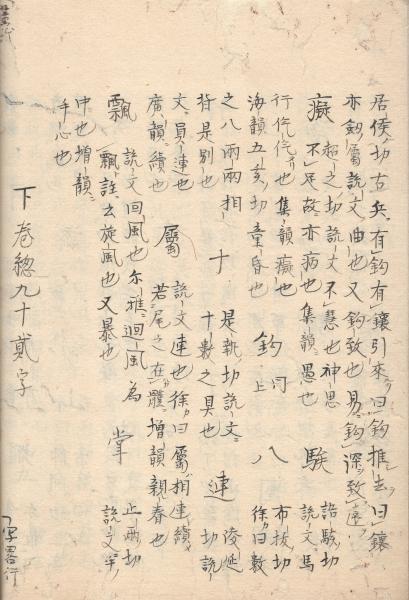 居侯切古兵有鈎有鑲引來曰鈎推去曰鑲
亦劔屬説文曲也又鈎致也易鈎深致遠
癡 超之切説文不慧也神思
不足故亦病也集韻愚也
騃 語駭切
説文馬
行仡仡也集韻癡也 鈎 同上 八 布拔切
海韻五亥切童昏也 徐曰數
之八兩兩相 十 是執切説文 連 陵延
背是別也 十數之具也 切説
文員連也 屬 説文連也徐曰屬相連續
廣韻續也 若尾之在體増韻親眷也
飄 説文回風也尓雅迴風為 掌 止兩切
飄註云旋風也又暴也 説文手
中也増韻
手心也
下卷總九十貳字